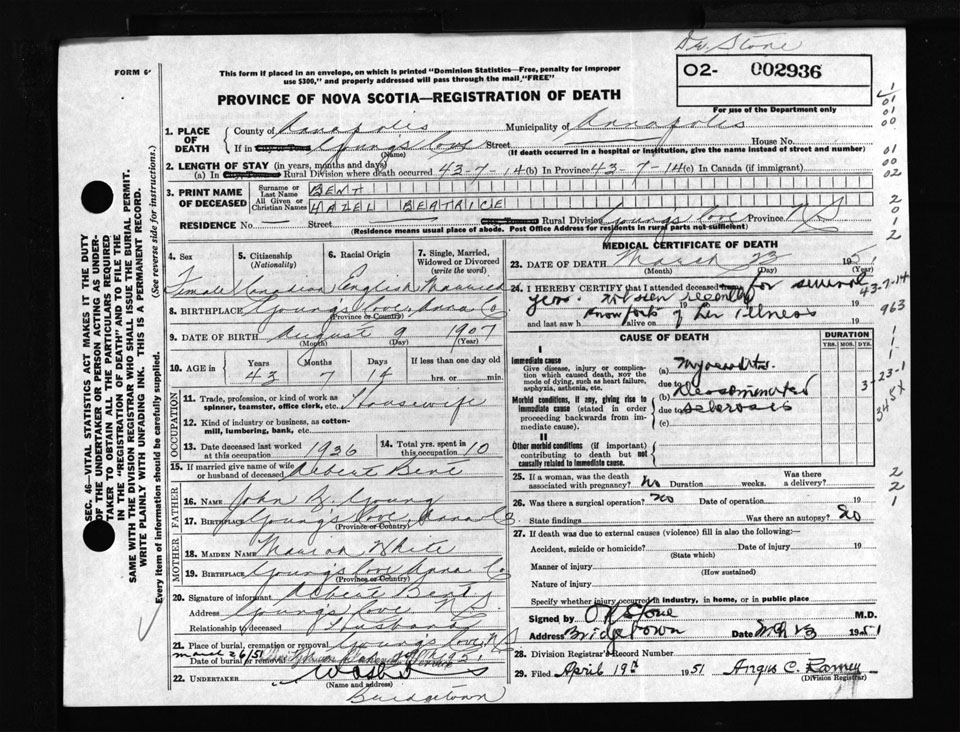 Dr. Stone
FORM 6
This form if placed in an envelope, on which is printed "Dominion Statistics—Free, penalty for improper
use $300," and properly addressed will pass through the mail "FREE"
02- 002936
PROVINCE OF NOVA SCOTIA—REGISTRATION OF DEATH
For use of the Department only
1. PLACE OF DEATH
County of Annapolis Municipality of Annapolis
If in Young's Cove Street House No.
(Name) (If death occurred in a hospital or institution, give the name instead of street and number)
2. LENGTH OF STAY (in years, months and days)
(a) In Rural Division where death occurred 43-7-14 (b) In Province 43-7-14 (c) In Canada (if immigrant)
3. PRINT NAME OF DECEASED
Surname or Last Name BENT
All Given or Christian Names HAZEL BEATRICE
RESIDENCE No. Street Rural Division Young's Cove Province N.S
(Residence means usual place of abode. Post Office Address for residents in rural parts not sufficient)
4. Sex Female
5. Citizenship (Nationality) Canadian
6. Racial Origin English
7. Single, Married, Widowed or Divorced (write the word) Married
8. BIRTHPLACE Young's Cove, Anna Co
(Province or Country)
9. DATE OF BIRTH August 9 1907
(Month) (Day) (Year)
10. AGE in Years 43 Months 7 Days 14 If less than one day old
hrs. or min.
OCCUPATION
11. Trade, profession, or kind of work as spinner, teamster, office clerk, etc. Housewife
12. Kind of industry or business, as cotton-mill, lumbering, bank, etc.
13. Date deceased last worked at this occupation 1936
14. Total yrs. spent in this occupation 10
15. If married give name of wife or husband of deceased Albert Bent
FATHER
16. Name John B. Young
17. Birthplace Young's Cove, Anna Co.
(Province or Country)
MOTHER
18. MAIDEN NAME White
19. BIRTHPLACE Young's Cove Anna Co
(Province or Country)
20. Signature of informant Albert Bent
Address Young's Cove N.S.
Relationship to deceased Husband
21. Place of burial, cremation or removal Young's Cove, N S
Date of burial or removal March 26/51
22. UNDERTAKER
(Name and address)
Bridgetown
MEDICAL CERTIFICATE OF DEATH
23. DATE OF DEATH March 23 1951
(Month) (Day) (Year)
24. I HEREBY CERTIFY that I attended deceased for several
years. Not seen recently 19
and last saw h alive on 19
Know facts of her illness
CAUSE OF DEATH
DURATION
YRS. MOS. DYS.
I
Immediate cause
Give disease, injury or complication which caused death, not the mode of dying, such as heart failure, asphyxia, asthenia, etc.
(a) Myocarditis.
due to
Morbid conditions, if any, giving rise to immediate cause (stated in order proceeding backwards from immediate cause).
(b) Disseminated
due to sclerosis
(c)
II
Other morbid conditions (if important) contributing to death but not causally related to immediate cause.
25. If a woman, was the death associated with pregnancy? No Duration weeks. Was there a delivery?
26. Was there a surgical operation? No Date of operation 19
State findings Was there an autopsy? No
27. If death was due to external causes (violence) fill in also the following:
Accident, suicide or homicide? Date of injury 19
(State which)
Manner of injury
(How sustained)
Nature of injury
Specify whether injury occurred in industry, in home, or in public place
Signed by Stone M.D.
Address Bridgetown Date Mch 23 1951
28. Division Registrar's Record Number
29. Filed April 19th 1951 Angus C. Ramey
(Division Registrar)
SEC. 46—VITAL STATISTICS ACT MAKES IT THE DUTY
OF THE UNDERTAKER OR PERSON ACTING AS UNDER-
TAKER TO OBTAIN ALL THE PARTICULARS REQUIRED
IN THE "REGISTRATION OF DEATH" AND TO FILE THE
SAME WITH THE DIVISION REGISTRAR WHO SHALL ISSUE THE BURIAL PERMIT.
WRITE PLAINLY WITH UNFADING INK. THIS IS A PERMANENT RECORD.
Every item of information should be carefully supplied. (See reverse side for instructions.)
1
01
01
00
01
00
02
2
0
1
2
43-7-14
963
1
1
1
3-23-1
345X
2
2
1